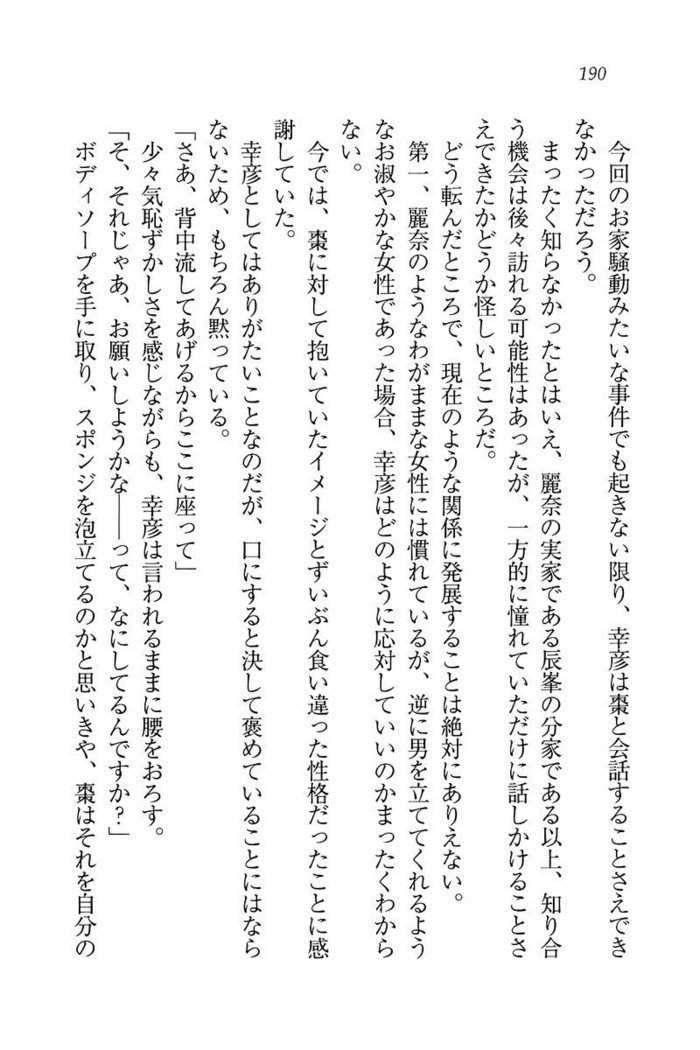 190
今回のお家騒動みたいな事件でも起きない限り、幸彦は棗と会話することさえでき
なかっただろう。
まったく知らなかったとはいえ、麗奈の実家である辰峯の分家である以上、知り合
う機会は後々訪れる可能性はあったが、一方的に憧れていただけに話しかけることさ
えできたかどうか怪しいところだ。
どう転んだところで、現在のような関係に発展することは絶対にありえない。
第一、麗奈のようなわがままな女性には慣れているが、逆に男を立ててくれるよう
なお淑やかな女性であった場合、幸彦はどのように応対していいのかまったくわから
ない。
今では、棗に対して抱いていたイメージとずいぶん食い違った性格だったことに感
謝していた。
幸彦としてはありがたいことなのだが、口にすると決して褒めていることにはなら
ないため、もちろん黙っている。
「さあ、背中流してあげるからここに座って」
少々気恥ずかしさを感じながらも、幸彦は言われるままに腰をおろす。
「そ、それじゃあ、お願いしようかな――って、なにしてるんですか?」
ボディソープを手に取り、スポンジを泡立てるのかと思いきや、棗はそれを自分の